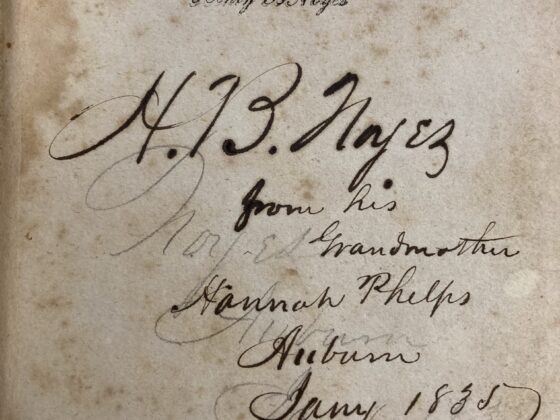 Henry B Noyes
H. B. Noyes
from his
Noyes Grandmother
Hannah Phelps
Auburn
Auburn
Jany 1835